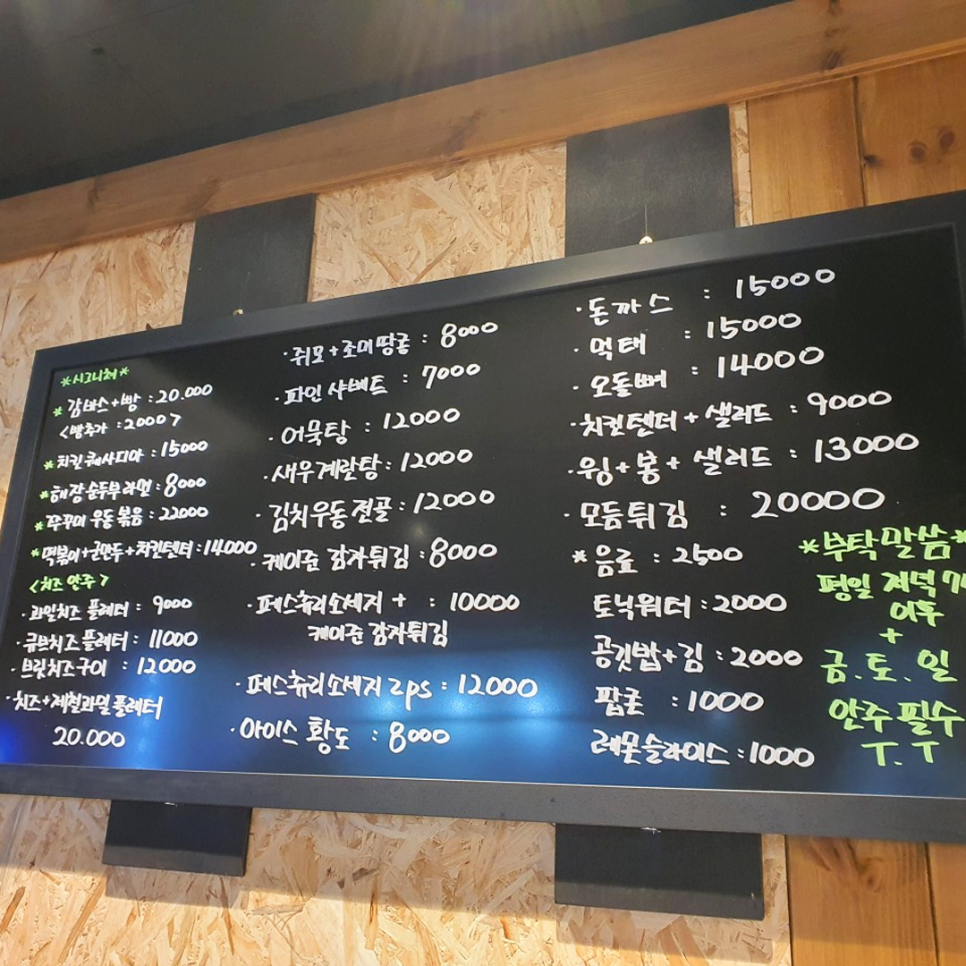 *시그니처*
* 감바스+빵 : 20.000
<빵추가 : 2000>
* 치킨 퀘사디아 : 15000
* 해장 순두부라면 : 8000
* 쭈꾸미 우동 볶음 : 22000
* 떡볶이+군만두+치킨텐더 : 14000
<치즈 안주>
· 과일치즈 플레터 : 9000
· 큐브치즈 플레터 : 11000
· 브릿치즈구이 : 12000
· 치즈+제철과일 플레터
20.000
· 쥐포+조미땅콩 : 8000
· 파인 샤베트 : 7000
· 어묵탕 : 12000
· 새우계란탕 : 12000
· 김치우동전골 : 12000
· 케이준 감자튀김 : 8000
· 페스츄리소세지 + : 10000
케이준 감자튀김
· 페스츄리소세지 2ps : 12000
· 아이스 황도 : 8000
· 돈까스 : 15000
· 먹태 : 15000
· 오돌뼈 : 14000
· 치킨텐더 + 샐러드 : 9000
· 윙+봉+ 샐러드 : 13000
· 모듬튀김 : 20000
* 음료 : 2500
토닉워터 : 2000
공깃밥+김 : 2000
팝콘 : 1000
레몬슬라이스 : 1000
*부탁말씀*
평일 저녁
이후
+
금.토.일
안주필수
T.T